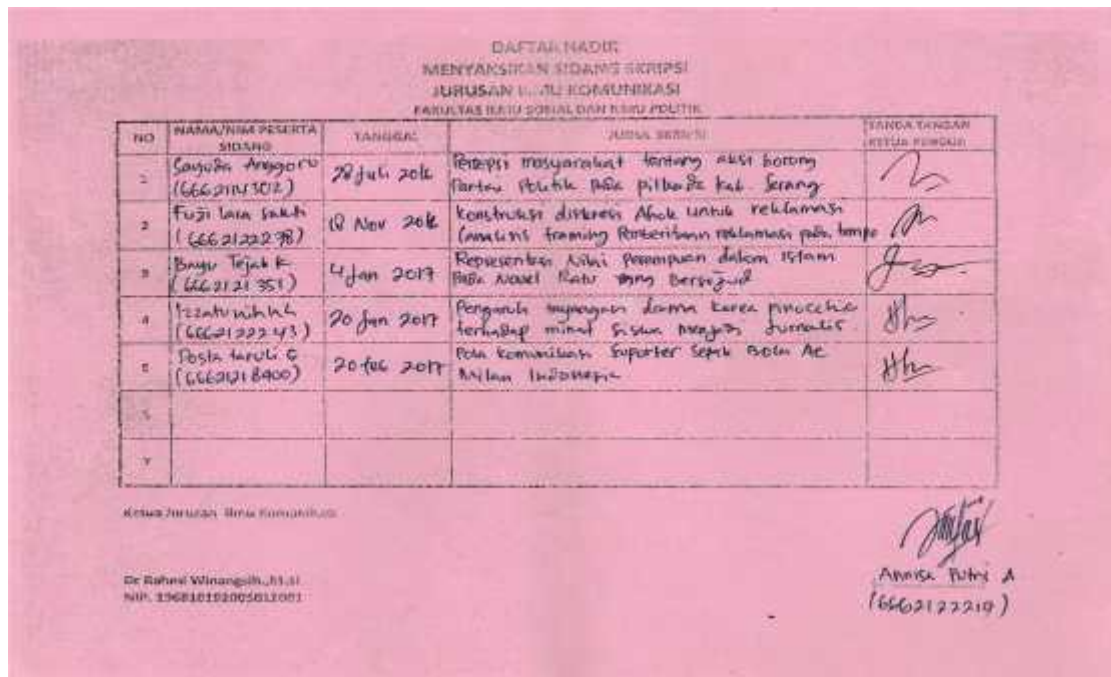 DAFTAR HADIR
MENYAKSIKAN SIDANG SKRIPSI
JURUSAN ILMU KOMUNIKASI
FAKULTAS ILMU SOSIAL DAN ILMU POLITIK
NO NAMA/NIM PESERTA SIDANG TANGGAL JUDUL SKRIPSI TANDA TANGAN KETUA PENGUJI
1 Sayuda Anggoro 28 Juli 2016 Persepsi masyarakat tentang aksi borong
Partai Politik pada pilkada kab. Serang
2 Fuji Lara Sakti 18 Nov 2016 Konstruksi diskresi Ahok untuk reklamasi
(6662122278) (analisis framing Pemberitaan reklamasi pada tempo
3 Bayu Tejak K 4 Jan 2017 Representasi Nilai Perempuan dalam Islam
(6662121351) Pada Novel Ratu yang Bersujud
4 Izzatunnihkh 20 Jan 2017 Pengaruh tayangan drama Korea pinocchio
(6662122243) terhadap minat siswa menjadi Jurnalis
5 20 2017 Pola komunikasi Suporter Sepak Bola AC
Milan Indonesia
6
7
Ketua Jurusan Ilmu Komunikasi
Dr Rahmi Winangsih.,M.si
Annisa Putri A
(6662122219)